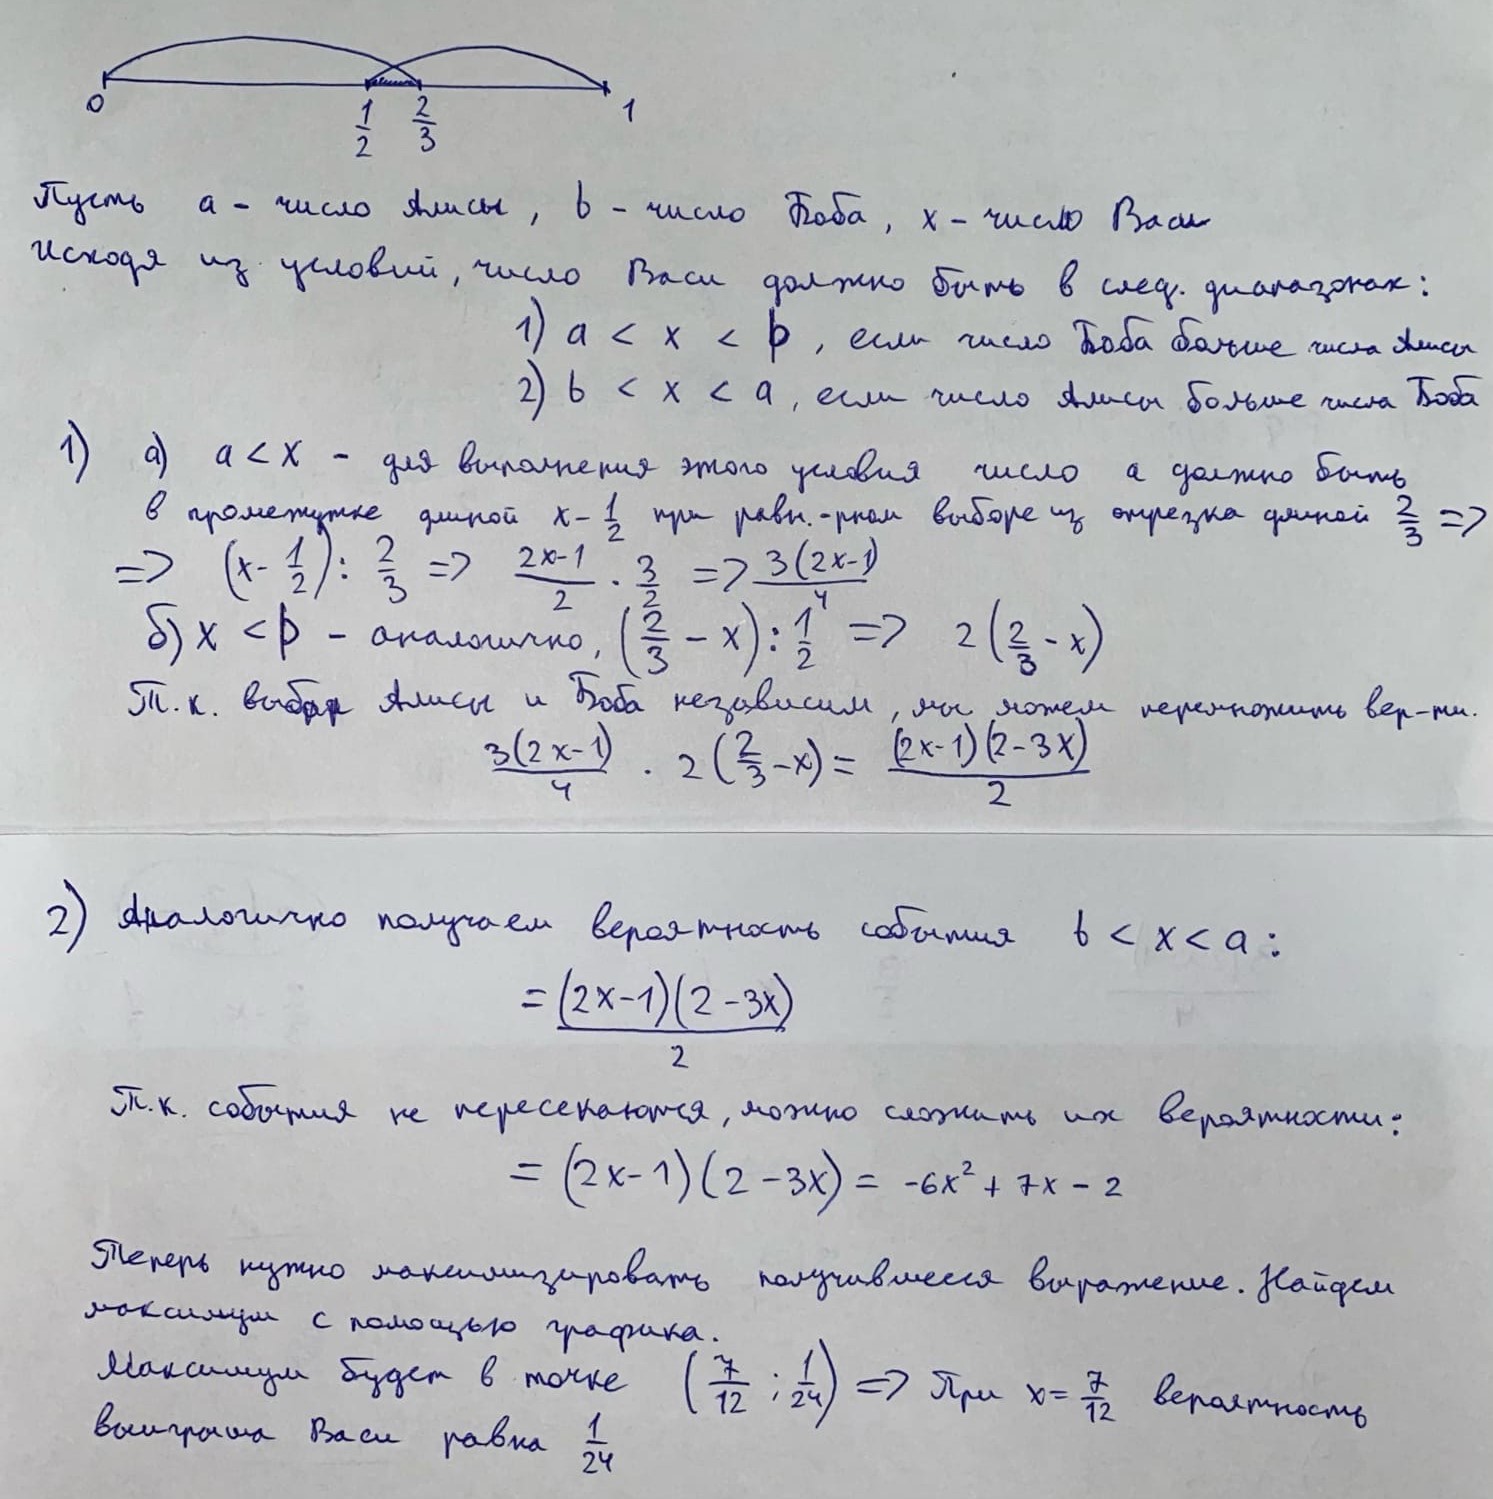 0 1/2 2/3 1
Пусть a - число Алисы, b - число Боба, x - число Васи
Исходя из условий, число Васи должно быть в след. диапазонах:
1) a < x < b, если число Боба больше числа Алисы
2) b < x < a, если число Алисы больше числа Боба
1) а) a < x - для выполнения этого условия число a должно быть
в промежутке длиной x - 1/2 при равн.-рном выборе из отрезка длиной 2/3 =>
=> (x - 1/2) : 2/3 => (2x-1)/2 · 3/2 => 3(2x-1)/4
б) x < b - аналогично, (2/3 - x) : 1/2 => 2(2/3 - x)
Т.к. выбор Алисы и Боба независим, мы можем перемножить вер-ти.
3(2x-1)/4 · 2(2/3 - x) = (2x-1)(2-3x)/2
2) Аналогично получаем вероятность события b < x < a:
= (2x-1)(2-3x)/2
Т.к. события не пересекаются, можно сложить их вероятности:
= (2x-1)(2-3x) = -6x² + 7x - 2
Теперь нужно максимизировать получившееся выражение. Найдем
максимум с помощью графика.
Максимум будет в точке (7/12 ; 1/24) => При x = 7/12 вероятность
выигрыша Васи равна 1/24